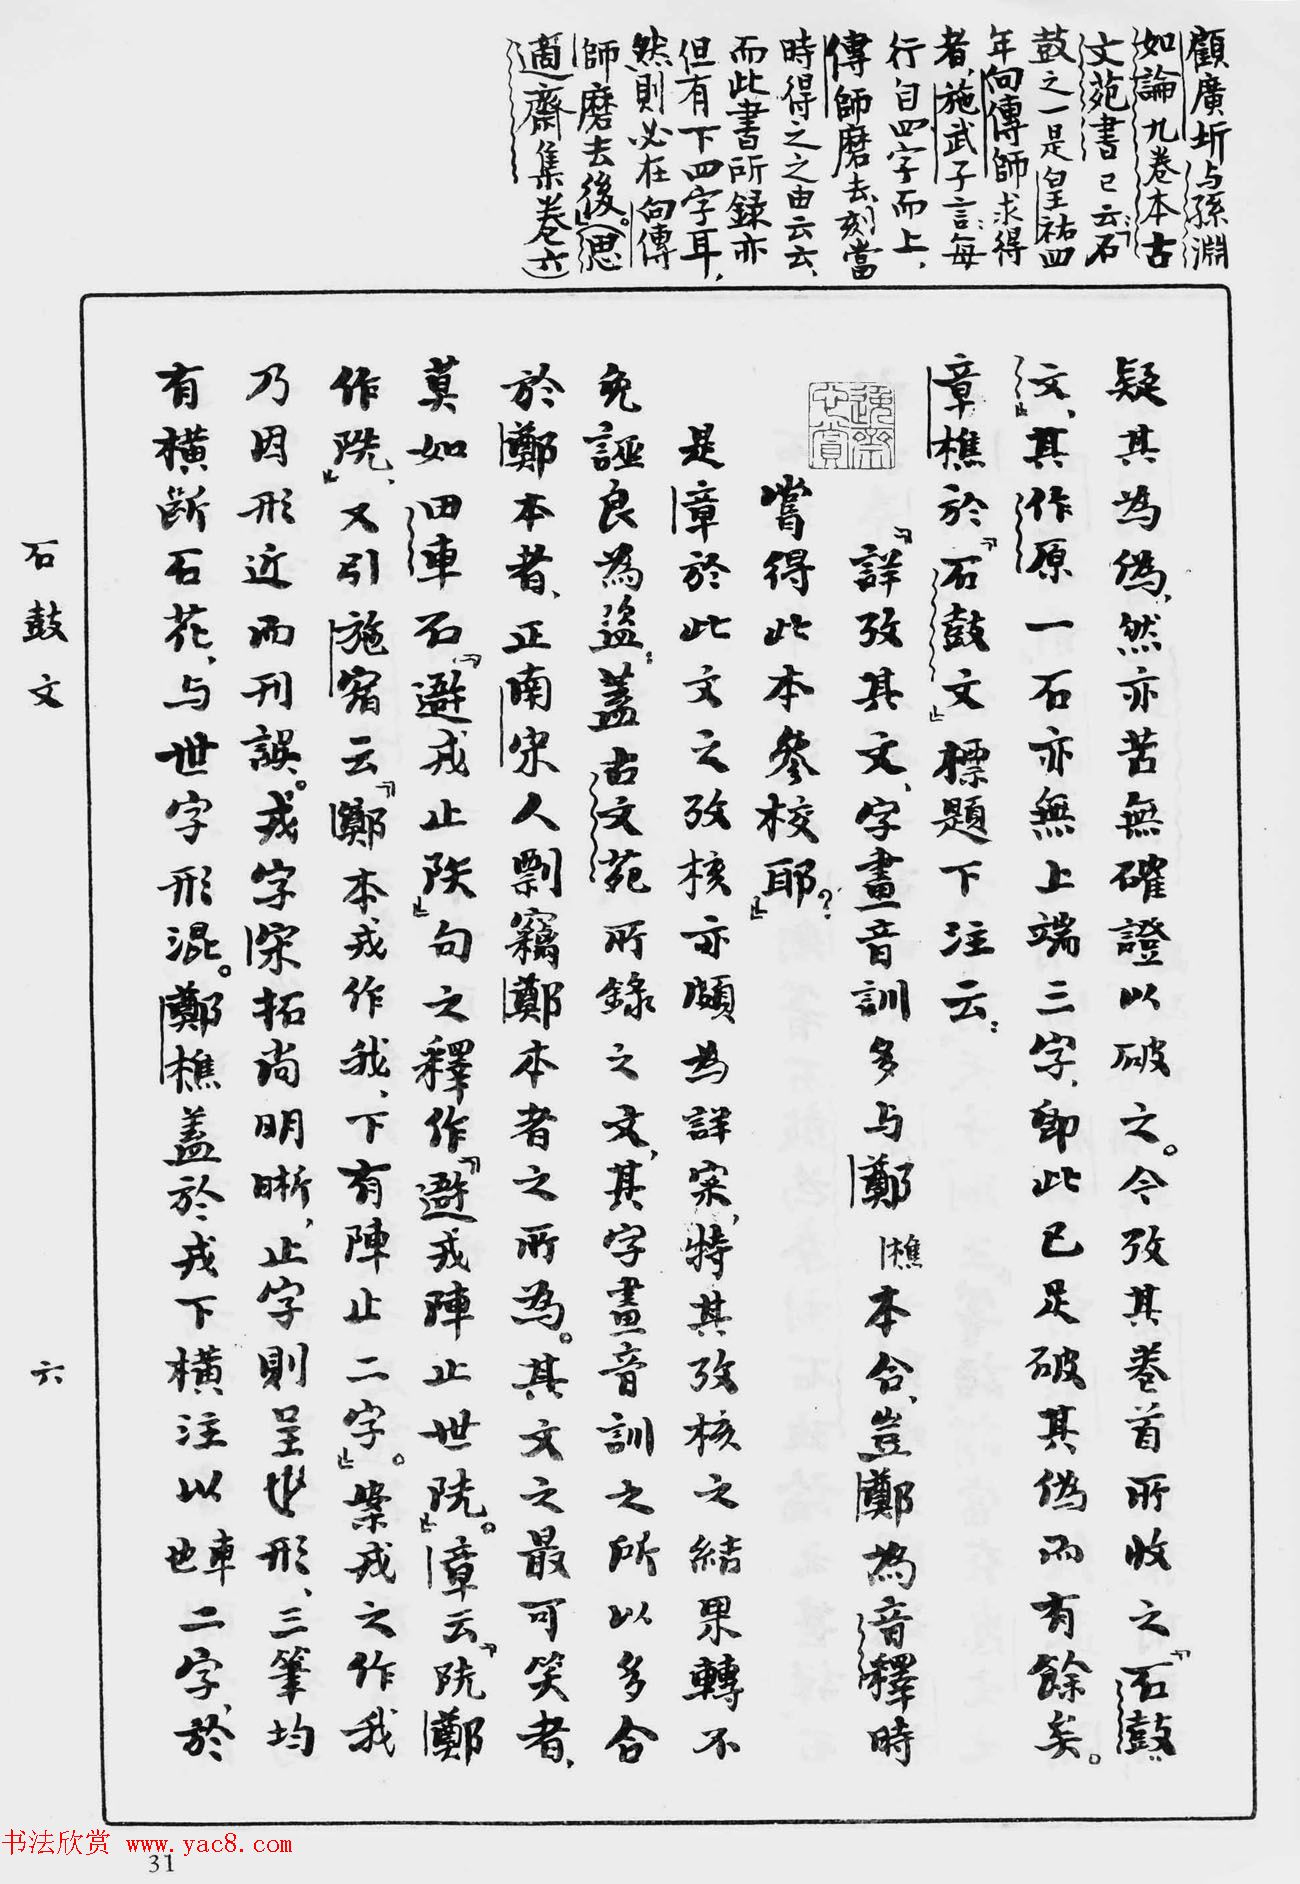 顧廣圻与孫淵
如論九卷本古
文苑書已云：「石
鼓之一是皇祐四
年向傳師求得
者，施武子言：每
行自四字而上，
傳師磨去，刻當
時得之之由云云，
而此書所錄亦
但有下四字耳，
然則必在向傳
師磨去後。」（思
適齋集卷六）
疑其為偽，然亦苦無確證以破之。今攷其卷首所收之「石鼓
文」，其作原一石亦無上端三字，卽此已足破其偽而有餘矣。
章樵於「石鼓文」標題下注云：
「詳攷其文，字畫音訓多与鄭樵本合，豈鄭為音釋時
嘗得此本參校耶？」
是章於此文之攷核亦頗為詳寀，特其攷核之結果轉不
免誣良為盜：蓋古文苑所錄之文，其字畫音訓之所以多合
於鄭本者，正南宋人剽竊鄭本者之所為。其文之最可笑者，
莫如田車石「避戎止陝」句之釋作「避戎陣止世阢」。章云「阢鄭
作𨹟」，又引施宿云「鄭本戎作我，下有陣止二字」。案戎之作我
乃因形近而刊誤。戎字宋拓尚明晰，止字則呈形，三筆均
有橫斷石花，与世字形混。鄭樵蓋於戎下橫注以車也二字，於
石鼓文
六
31
书法欣赏 www.yac8.com